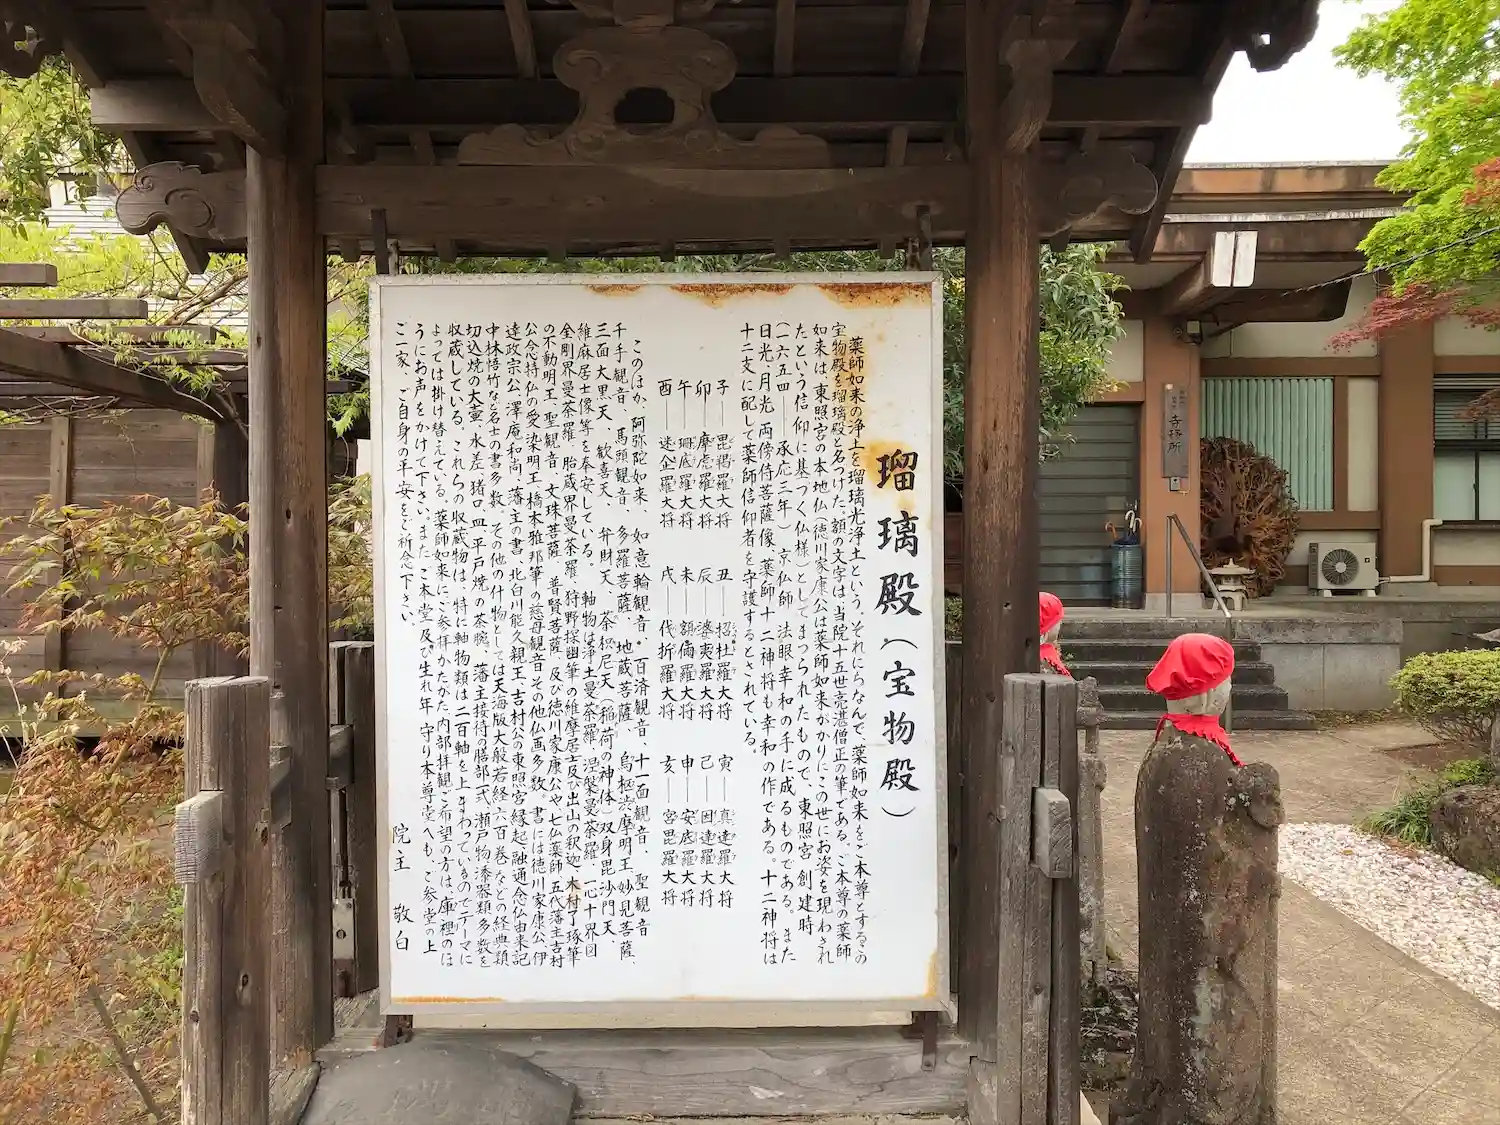 瑠璃殿（宝物殿）
薬師如来の浄土を瑠璃光浄土という。それにちなんで、薬師如来をご本尊とするこの
宝物殿を瑠璃殿と名つけた。額の文字は当院十五世亮湛僧正の筆である。ご本尊の薬師
如来は、東照宮の本地仏（徳川家康公は薬師如来がかりにこの世にお姿を現わされ
たという信仰に基づく仏様）としてまつられたもので、東照宮創建時
（一六五四―承応三年）京仏師 法眼幸和の手に成るものである。また
日光、月光両傍侍菩薩像、薬師十二神将も幸和の作である。十二神将は
十二支に配して薬師信仰者を守護するとされている。
子―毘羯羅大将 丑―招杜羅大将 寅―真達羅大将
卯―摩虎羅大将 辰―婆夷羅大将 己―因達羅大将
午―珊底羅大将 未―額儞羅大将 申―安底羅大将
酉―迷企羅大将 戌―伐折羅大将 亥―宮毘羅大将
このほか、阿弥陀如来、如意輪観音、百済観音、十一面観音、聖観音
千手観音、馬頭観音、多羅菩薩、地蔵菩薩、烏枢渋摩明王、妙見菩薩、
三面大黒天、歓喜天、弁財天、荼枳尼天（稲荷の神体）双身毘沙門天、
維麻居士像等を奉安している。 軸物は浄土曼荼羅、涅槃曼荼羅、一心十界図
全剛界曼荼羅、胎蔵界曼荼羅、狩野探幽筆の維摩居士及び出山の釈迦、木村了琢筆
の不動明王、聖観音、文珠菩薩、普賢菩薩、及び徳川家康公や七仏薬師、五代藩主吉村
公念持仏の愛染明王、橋本雅邦筆の慈母観音、その他仏画多数、書には徳川家康公、伊
達政宗公、澤庵和尚、藩主の書、北白川能久親王、吉村公の東照宮縁起、融通念仏由来記
中林悟竹など名士の書多数、その他の什物としては天海版大般若経六百巻などの経典類
切込焼の大壷、水差、猪口、皿、平戸焼の茶腕、藩主接待の膳部一式、瀬戸物、漆器類多数を
収蔵している。これらの収蔵物は、特に軸物類は二百軸を上まわっているのでテーマに
よっては掛け替えている。薬師如来にご参拝かたがた内部拝観ご希望の方は、庫裡のほ
うにお声をかけて下さい。また、ご本堂及び生れ年守り本尊堂へも、ご参堂の上
ご一家、ご自身の平安をご祈念下さい。
院主 敬白
寺務所